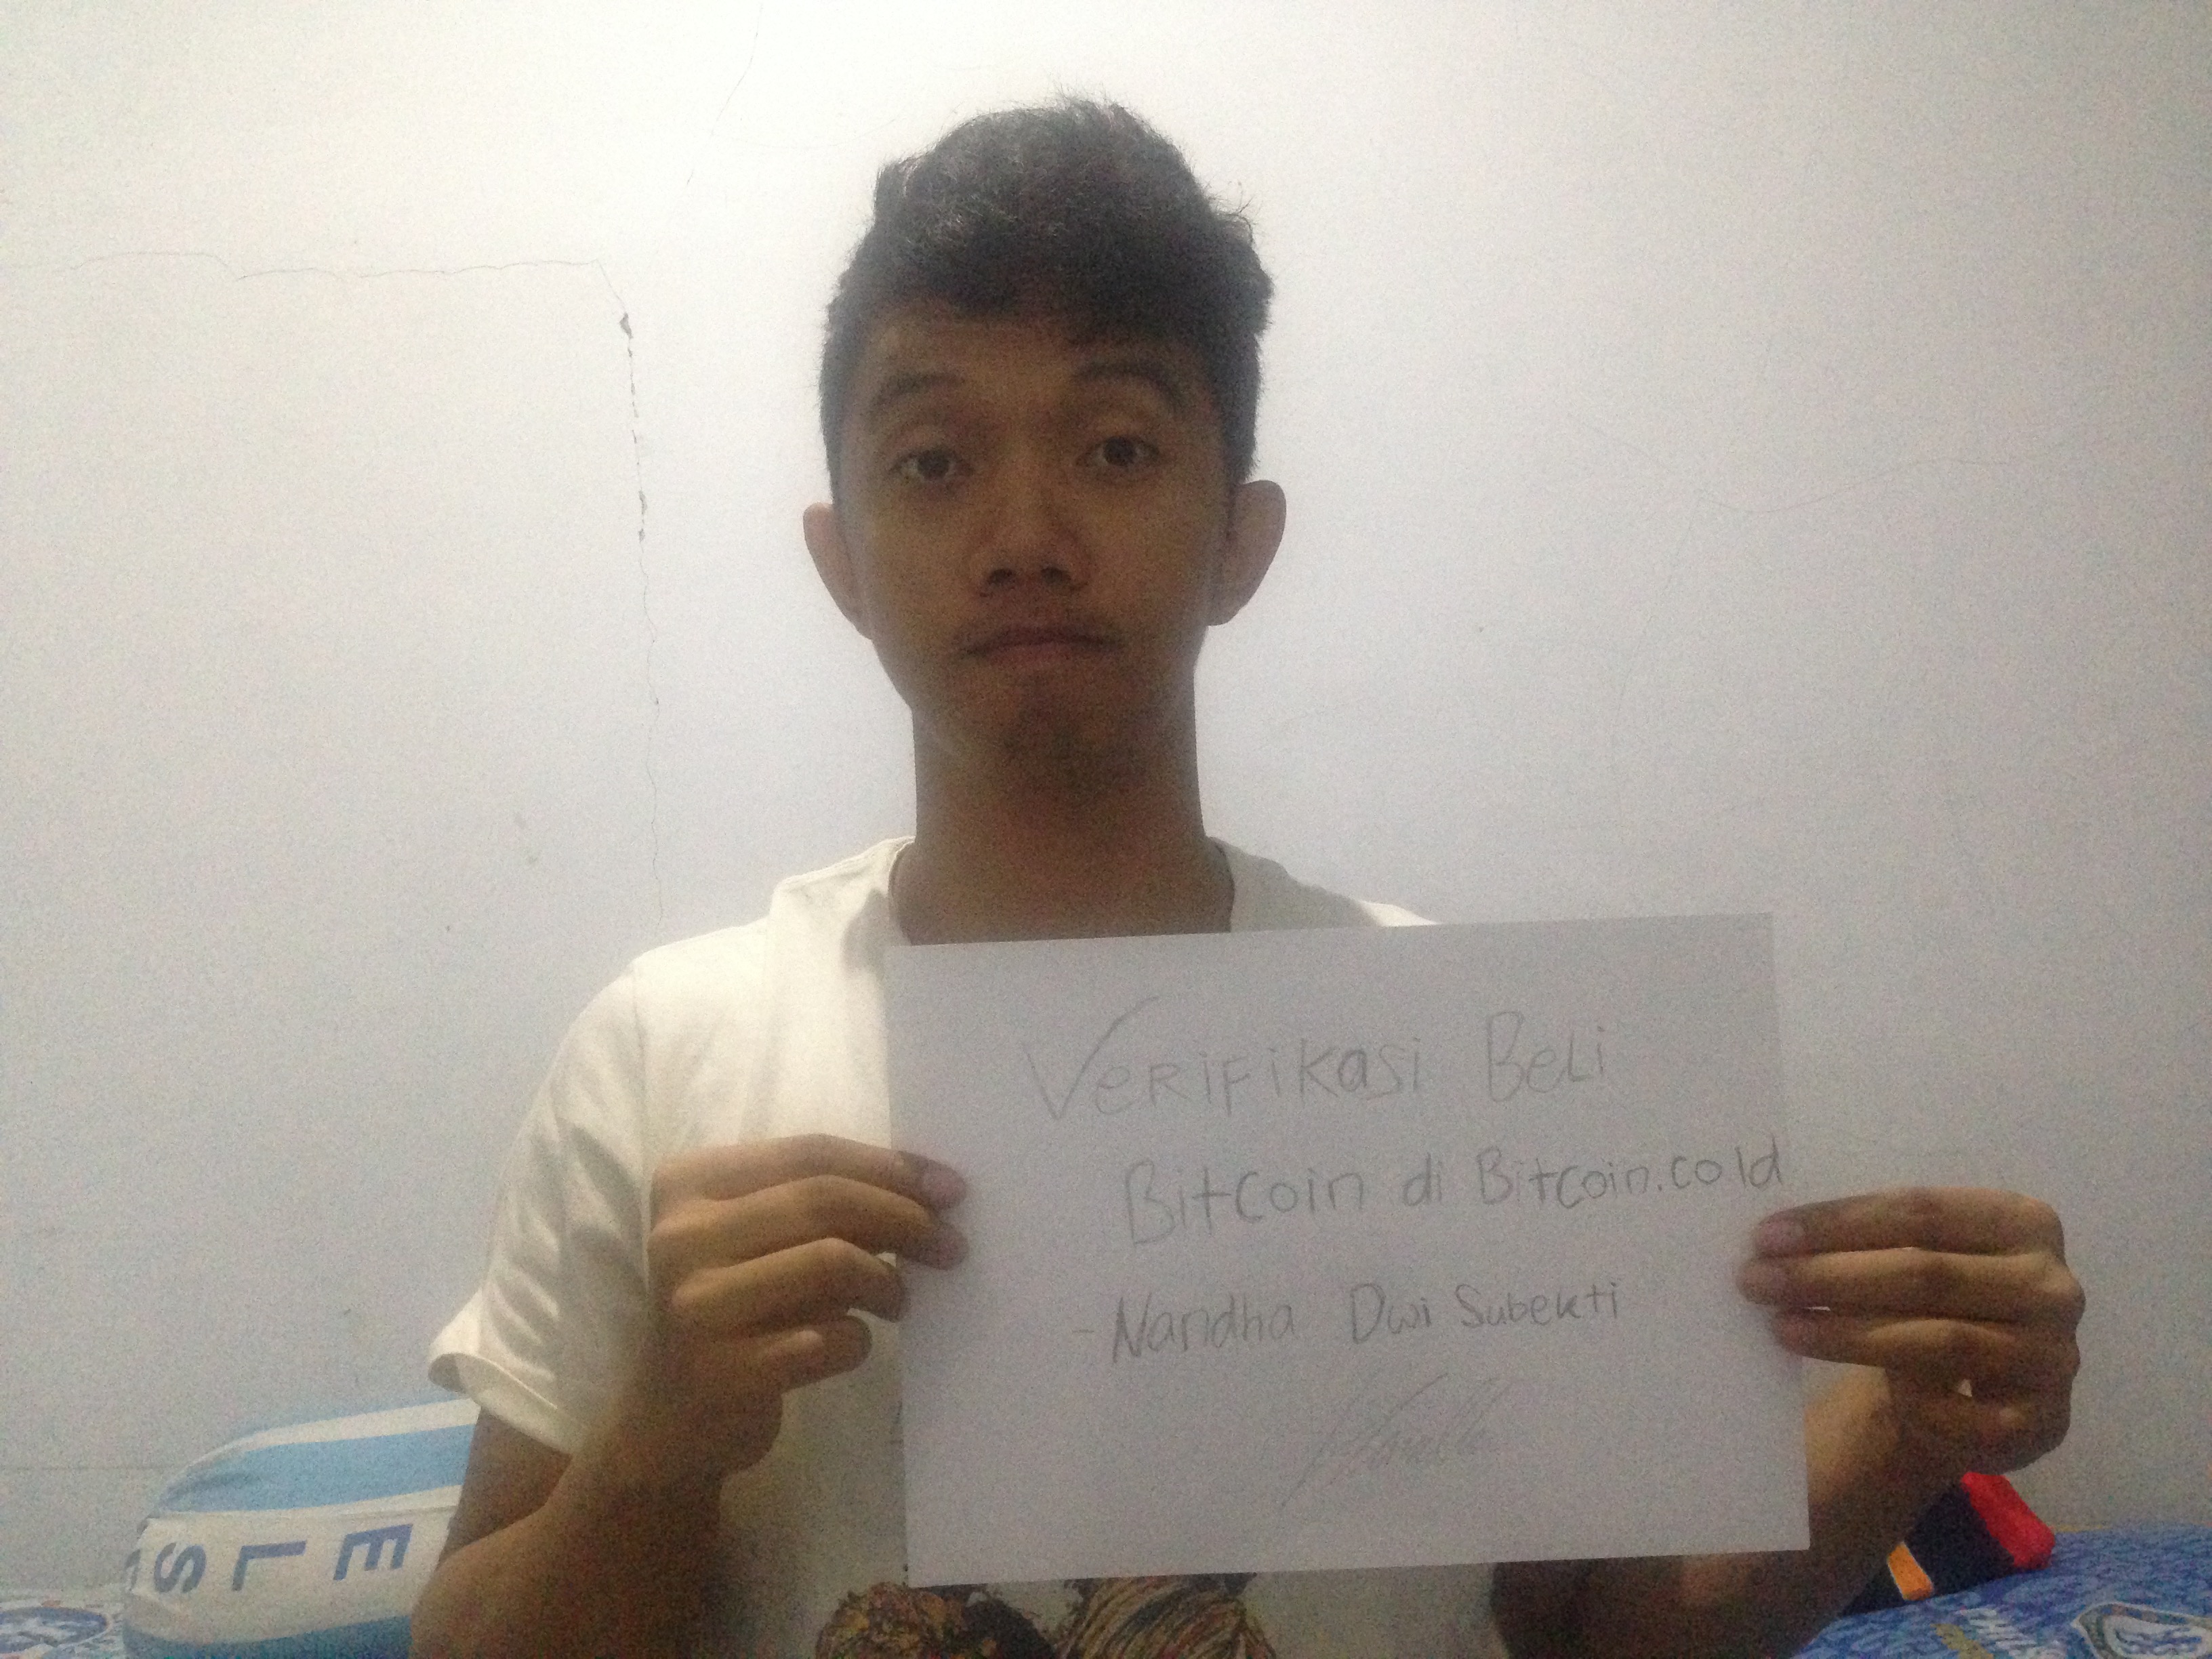 Verifikasi Beli
Bitcoin di Bitcoin.co.id
- Nandha Dwi Subekti
E
L
S